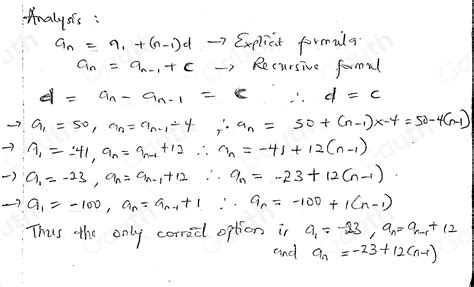 Analysis :
aₙ = a₁ + (n-1)d → Explicit formula.
aₙ = aₙ₋₁ + c → Recursive formul
d = aₙ - aₙ₋₁ = c ∴ d = c
→ a₁ = 50, aₙ = aₙ₋₁ - 4 ∴ aₙ = 50 + (n-1)x-4 = 50-4(n-1)
→ a₁ = -41, aₙ = aₙ₋₁ + 12 ∴ aₙ = -41 + 12(n-1)
→ a₁ = -23, aₙ = aₙ₋₁ + 12 ∴ aₙ = -23 + 12(n-1).
→ a₁ = -100, aₙ = aₙ₋₁ + 1 ∴ aₙ = -100 + 1(n-1)
Thus the only correct option is a₁ = -23, aₙ = aₙ₋₁ + 12
and aₙ = -23 + 12(n-1)